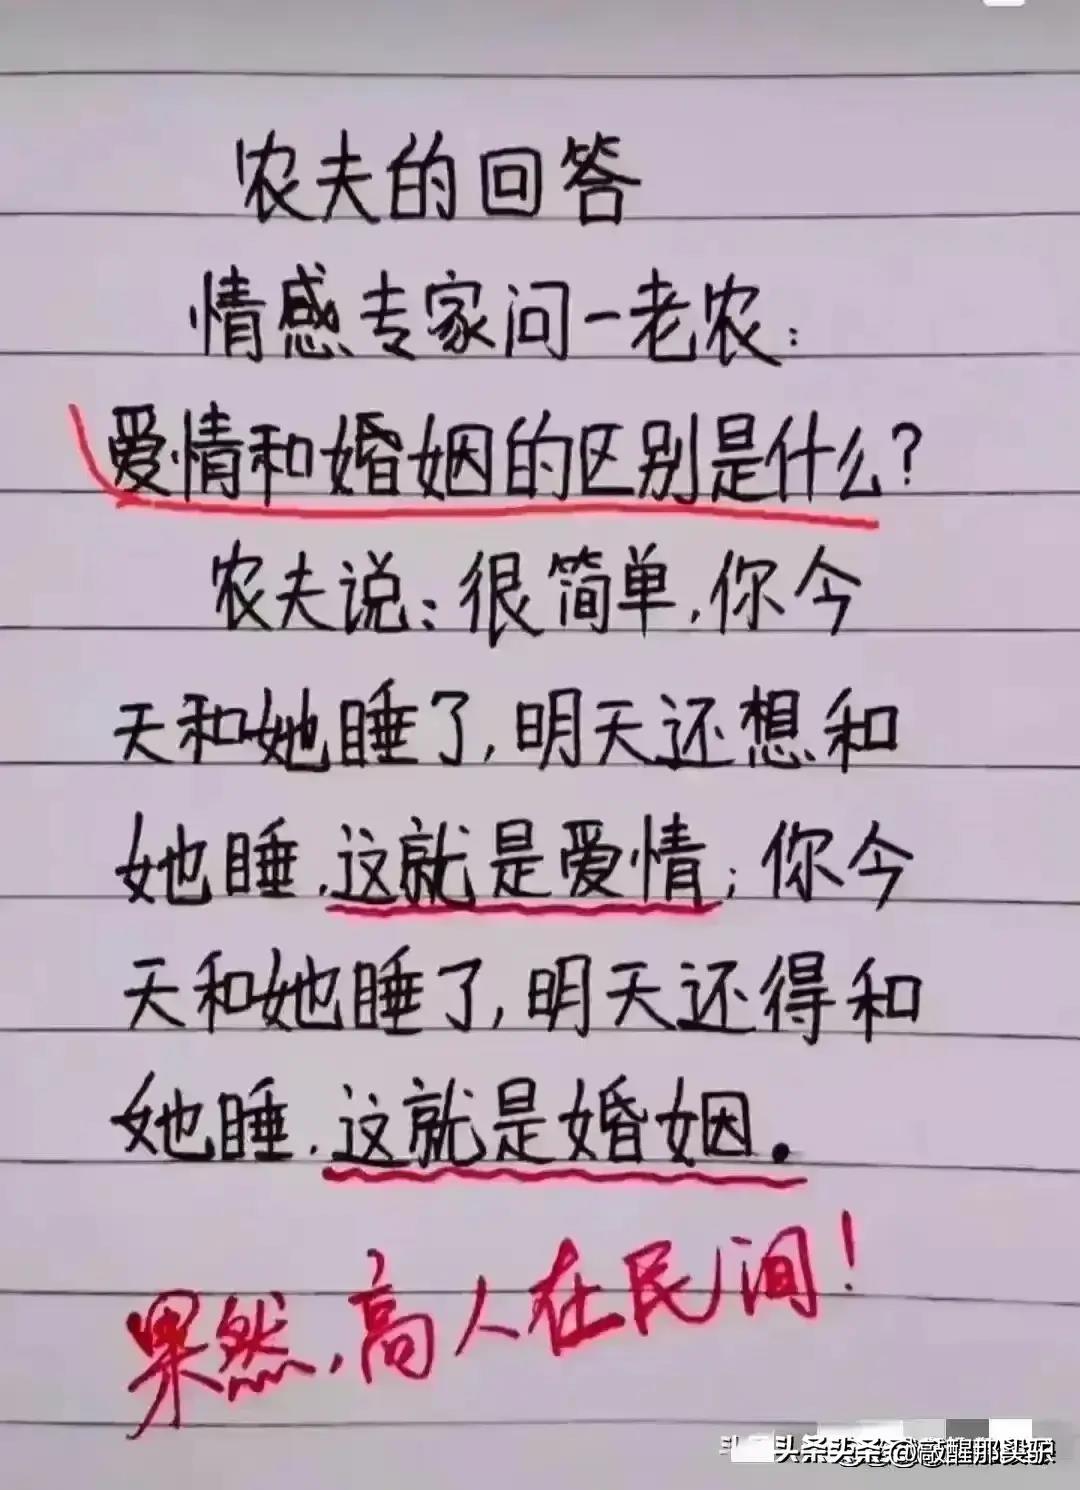 农夫的回答
情感专家问一老农:
爱情和婚姻的区别是什么?
农夫说:很简单,你今
天和她睡了,明天还想和
她睡.这就是爱情;你今
天和她睡了,明天还得和
她睡.这就是婚姻.
果然,高人在民间!
头条 @敲醒那